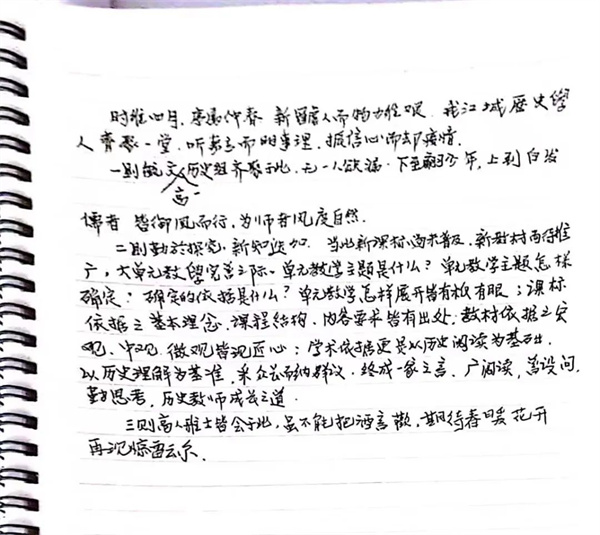 时维四月，序属仲春 新冠虐人而 我江城历史學
人齊聚一堂，听 而明事理，振信心而却疫情，
一则 文历史组齐聚于此，无一人缺漏，下至翩翩少年，上到白发
高一
儒者 皆御风而行，为师者风度自然．
二则勤於探究，新知迭加 当此新课标尚未普及，新教材尚待推
广，大单元教學完善之际，单元教学主题是什么？单元教学主题怎样
确定？确定的依据是什么？单元教学怎样展开皆有板有眼；课标
依据之基本理念，课程结构，内容要求皆有出处，教材依据之宏
观，中观，微观皆现匠心；学术依据更是以历史阅读为基础，
以历史理解为基准，采众长而纳群议，终成一家之言．广阅读，善设问，
勤思考，历史教师成长之道．
三则高人雅士皆会于此，虽不能把酒言歡，期待春暖花开
再现惊雷云尔．